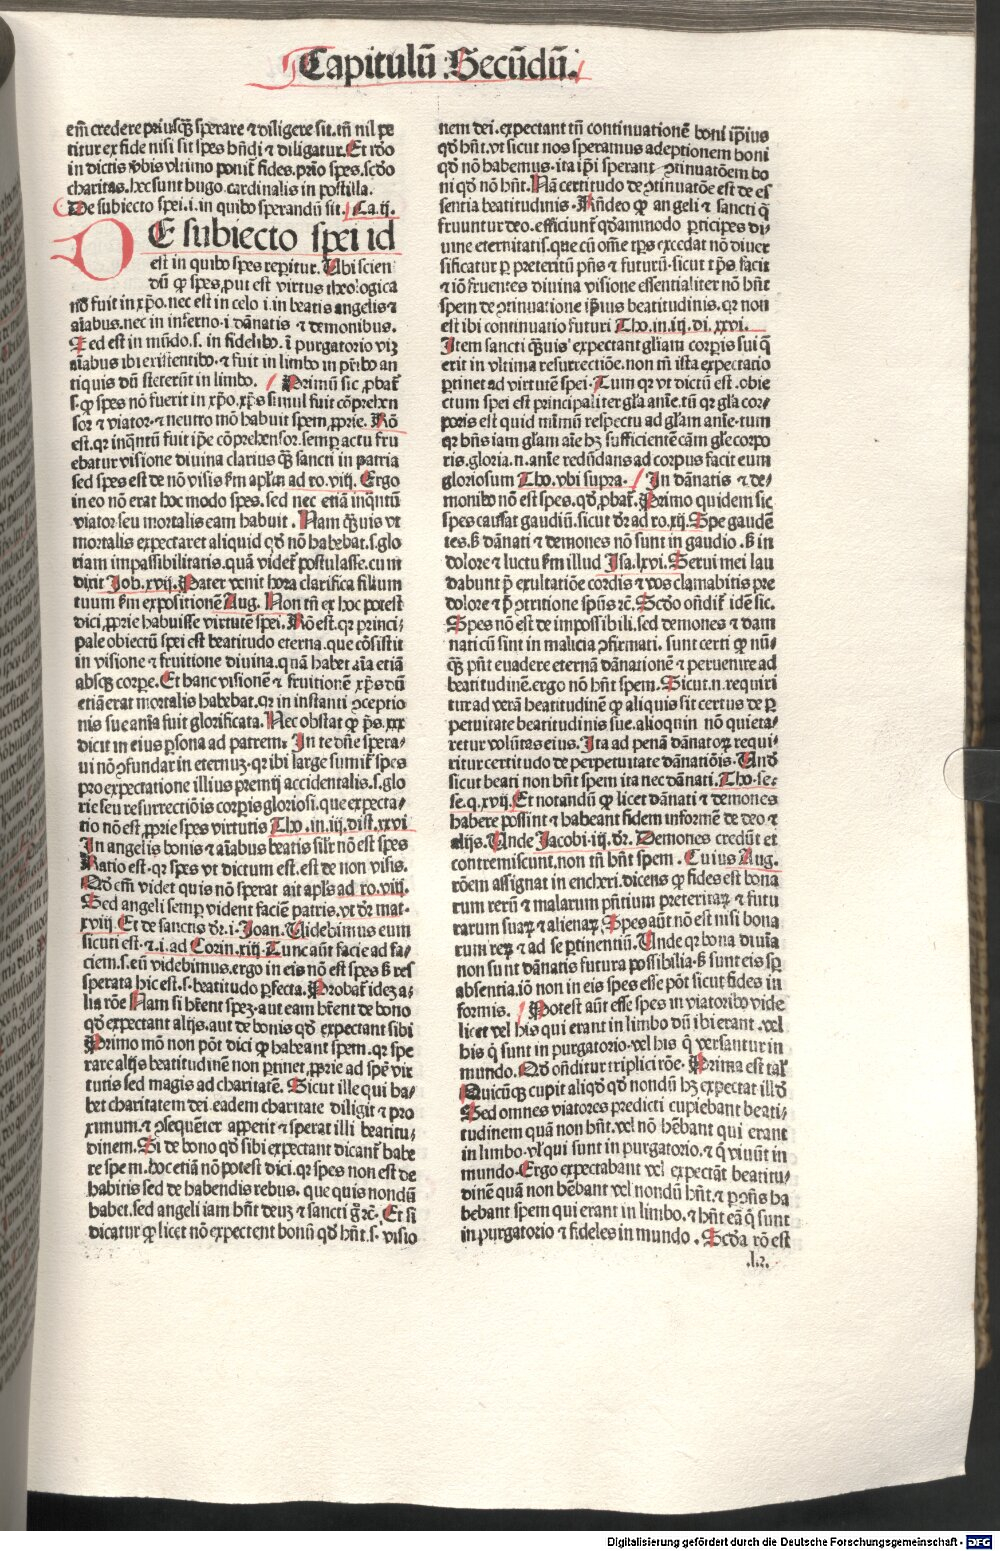 Capitulū Secūdū.
em̄ credere priusq̄ꝫ sperare ⁊ diligere sit. tn̄ nil pe
titur ex fide nisi sit spes hn̄di ⁊ diligatur. Et rō̄o
in dictis v̄bis vltimo ponit̄ fides. prio spes. scd̄o
charitas. hec sunt hugo cardinalis in postilla.
De subiecto spei .i. in quibꝰ sperandū sit. Ca. ij.
DE subiecto spei id
est in quibꝰ spes reperitur. Ubi scien
dū ꝙ spes, put est virtus theologica
nō fuit in xp̄o. nec est in celo .i. in beatis angelis ⁊
aīabus. nec in inferno .i. dānatis ⁊ demonibus.
Sed est in mūdo .s. in fidelibꝰ. ī purgatorio viꝫ
aīabus ibi existentibꝰ. ⁊ fuit in limbo in pr̄ibꝰ an
tiquis dū steterūt in limbo. Primū sic ꝓbat̄
.s. ꝙ spes nō fuerit in xp̄o. xp̄s simul fuit cōprehen
sor ⁊ viator. ⁊ neutro mō habuit spem, ꝓprie. Rō
est. qꝛ inq̄ntū fuit ip̄e cōprehensor. semꝑ actu fru
ebatur visione diuina clarius q̄ꝫ sancti in patria
sed spes est de nō visis ẜm apl'm ad ro. viij. Ergo
in eo nō erat hoc modo spes. sed nec etiā inq̄ntū
viator seu mortalis eam habuit. Nam q̄ꝫuis vt
mortalis expectaret aliquid qd̄ nō habebat .s. glo
riam impassibilitatis. quā videt̄ postulasse. cum
dixit Joh. xvij. Pater venit hora clarifica filium
tuum ẜm expositionē Aug. Non tn̄ ex hoc potest
dici, ꝓprie habuisse virtutē spei. Rō est. qꝛ princi-
pale obiectū spei est beatitudo eterna. que cōsistit
in visione ⁊ fruitione diuina. quā habet aīa etiā
absqꝫ corpe. Et hanc visionē ⁊ fruitionē xp̄s dū
etiā erat mortalis habebat. qꝛ in instanti ꝯceptio
nis sue anīa fuit glorificata. Nec obstat ꝙ ps̄. xxx
dicit in eius ꝑsona ad patrem. In te dn̄e spera-
ui nō ꝯfundar in eternuꝫ. qꝛ ibi large sumit̄ spes
pro expectatione illius premij accidentalis .s. glo
rie seu resurrectiōis corꝑis gloriosi. que expecta-
tio nō est, ꝓprie spes virtutis Tho. in .iij. dist. xxvi
In angelis bonis ⁊ aīabus beatis sil'r nō est spes
Ratio est. qꝛ spes vt dictum est. est de non visis.
Qd̄ em̄ videt quis nō sperat ait apl's ad ro. viij.
Sed angeli semꝑ vident faciē patris. vt dr̄ mat.
xviij. Et de sanctis dr̄ .i. Joan. Uidebimus eum
sicuti est. ⁊ .i. ad Corin. xiij. Tunc aūt facie ad fa-
ciem .s. eū videbimus. ergo in eis nō est spes ẜ res
sperata hic est .s. beatitudo ꝑfecta. Probat̄ ideꝫ a-
lia rōe Nam si hr̄ent speꝫ. aut eam hr̄ent de bono
qd̄ expectant alijs. aut de bonis qd̄ expectant sibi
Primo mō non pōt dici ꝙ habeant spem. qꝛ spe
rare alijs beatitudinē non ꝑtinet, ꝓprie ad spē vir
tutis sed magis ad charitatē. Sicut ille qui ha-
bet charitatem dei. eadem charitate diligit ⁊ pro
ximum. ⁊ ꝯsequēter appetit ⁊ sperat illi beatitu-
dinem. Si de bono qd̄ sibi expectant dicant̄ habe
re spem. hoc etiā nō potest dici. qꝛ spes non est de
habitis sed de habendis rebus. que quis nondū
habet. sed angeli iam hn̄t deuꝫ ⁊ sancti ꝗ̄ ⁊c̄. Et si
dicatur ꝙ licet nō expectent bonū qd̄ hn̄t .s. visio
nem dei. expectant tn̄ continuationē boni ip̄ius
qd̄ hn̄t. vt sicut nos speramus adeptionem boni
qd̄ nō habemus. ita ip̄i sperant ꝯtinuatōem bo
ni qd̄ nō hn̄t. Nā certitudo de ꝯtinuatōe est de es
sentia beatitudinis. Rn̄deo ꝙ angeli ⁊ sancti q̄
fruuntur deo. efficiunt̄ qd̄ammodo ꝑticipes di-
uine eternitatis. que cū om̄e tp̄s excedat nō diuer
sificatur ꝑ preteritū pn̄s ⁊ futurū. sicut tp̄s facit
⁊ iō fruentes diuina visione essentialiter nō hn̄t
spem de ꝯtinuatione ip̄ius beatitudinis. qꝛ non
est ibi continuatio futuri Tho. in .iij. di. xxvi.
Item sancti q̄ꝫuis expectant gl'iam corꝑis sui q̄
erit in vltima resurrectiōe. non tn̄ ista expectatio
ꝑtinet ad virtutē spei. Tum qꝛ vt dictū est. obie
ctum spei est principaliter gl'a anīe. tū qꝛ gl'a cor-
poris est quid minimū respectu ad gl'am anīe. tum
qꝛ hn̄s iam gl'am aīe hꝫ sufficientē cām gl'e corpo
ris. gloria .n. anīe redūdans ad corpus facit eum
gloriosum Tho. vbi supra. In dānatis ⁊ de-
monibꝰ nō est spes. qd̄, ꝓbat̄. Primo quidem sic
spes causat gaudiū. sicut dr̄ ad ro. xij. Spe gaudē
tes. ẜ dānati ⁊ demones nō sunt in gaudio. ẜ in
dolore ⁊ luctu ẜm illud Isa. lxvi. Serui mei lau
dabunt p̄ exultatiōe cordis ⁊ vos clamabitis pre
dolore ⁊ p̄ ꝯtritione spūs ⁊c̄. Scd̄o on̄dit̄ idē sic.
Spes nō est de impossibili. sed demones ⁊ dam
nati cū sint in malicia ꝯfirmati. sunt certi ꝙ nū-
q̄ꝫ pn̄t euadere eternā dānationē ⁊ peruenire ad
beatitudinē. ergo nō hn̄t spem. Sicut .n. requiri
tur ad verā beatitudinē ꝙ aliquis sit certus de ꝑ
petuitate beatitudinis sue. alioquin nō quieta-
retur volūtas eius. Ita ad penā dānatoꝝ requi-
ritur certitudo de perpetuitate dānatiōis. Und̄
sicut beati non hn̄t spem ita nec dānati. Tho. se-
se. q. xvij. Et notandū ꝙ licet dānati ⁊ demones
habere possint ⁊ habeant fidem informē de deo ⁊
alijs. Unde Jacobi .iij. dr̄. Demones credūt et
contremiscunt. non tn̄ hn̄t spem. Cuius Aug.
rōem assignat in encheri. dicens ꝙ fides est bona
rum rerū ⁊ malarum pn̄tium preteritaꝝ ⁊ futu
rarum suaꝝ ⁊ alienaꝝ. Spes aūt nō est nisi bona
rum reꝝ ⁊ ad se ꝑtinentiū. Unde qꝛ bona diuīa
non sunt dānatis futura possibilia. ẜ sunt eis sꝑ
absentia. iō non in eis spes esse pōt sicut fides in
formis. Potest aūt esse spes in viatoribꝰ vide
licet vel his qui erant in limbo dū ibi erant. vel
his q̄ sunt in purgatorio. vel his q̄ versantur in
mundo. Qd̄ on̄ditur triplici rōe. Prima est tal'
Quicūqꝫ cupit aliqd̄ qd̄ nondū hꝫ expectat ill'd
Sed omnes viatores predicti cupiebant beati-
tudinem quā non hn̄t. vel nō hēbant qui erant
in limbo. vl' qui sunt in purgatorio. ⁊ q̄ viuūt in
mundo. Ergo expectabant vel expectāt beatitu-
dinē quā non hēbant vel nondū hn̄t. ⁊ ꝑn̄s ha
bebant spem qui erant in limbo. ⁊ hn̄t eā q̄ sunt
in purgatorio ⁊ fideles in mundo. Scd̄a rō est
Digitalisierung gefördert durch die Deutsche Forschungsgemeinschaft - DFG